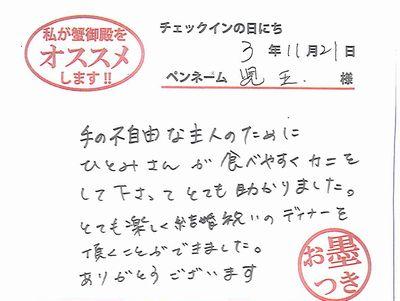 私が蟹御殿を
オススメ
します!!
チェックインの日にち
3年11月21日
ペンネーム 児玉. 様
手の不自由な主人のために
ひとみさんが食べやすくカニを
して下さってとても助かりました。
とても楽しく結婚祝いのディナーを
頂くことができました。
ありがとうございます
お墨
つき